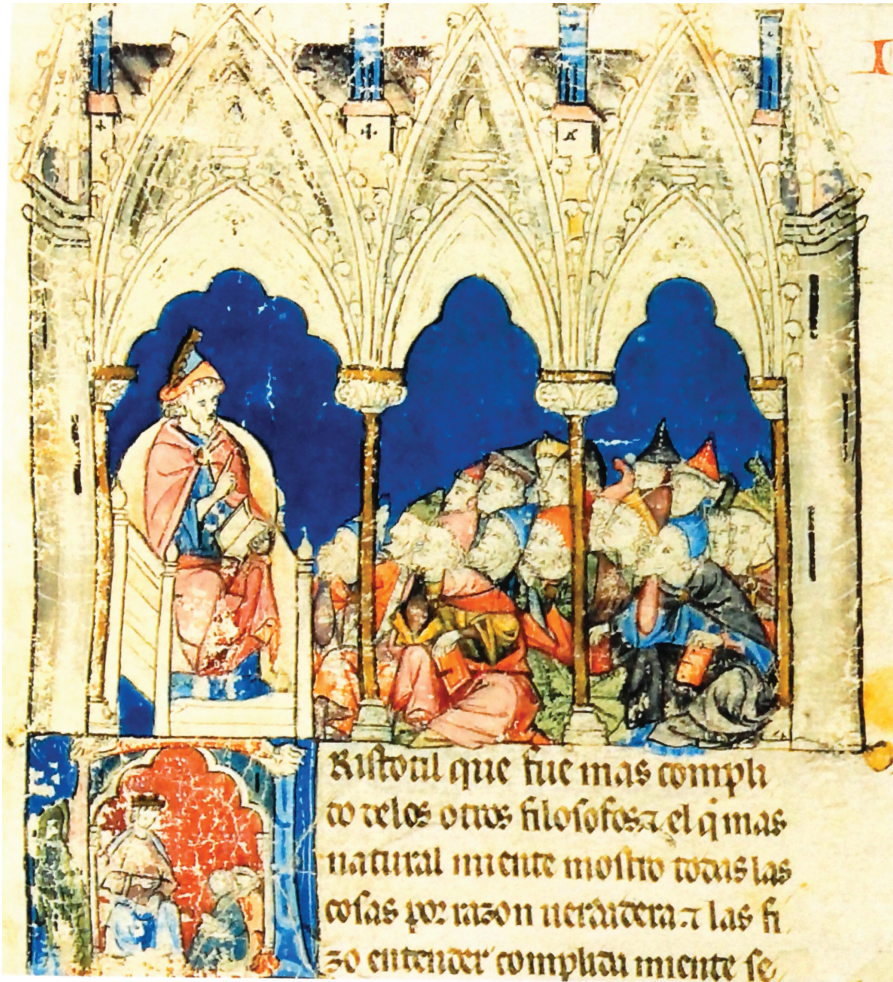 I
Ristotil que fue mas compli
do delos otros filosofos ⁊ el q̃ mas
natural miente mostro todas las
cosas por razon uerdadera ⁊ las fi
zo entender complida miente se